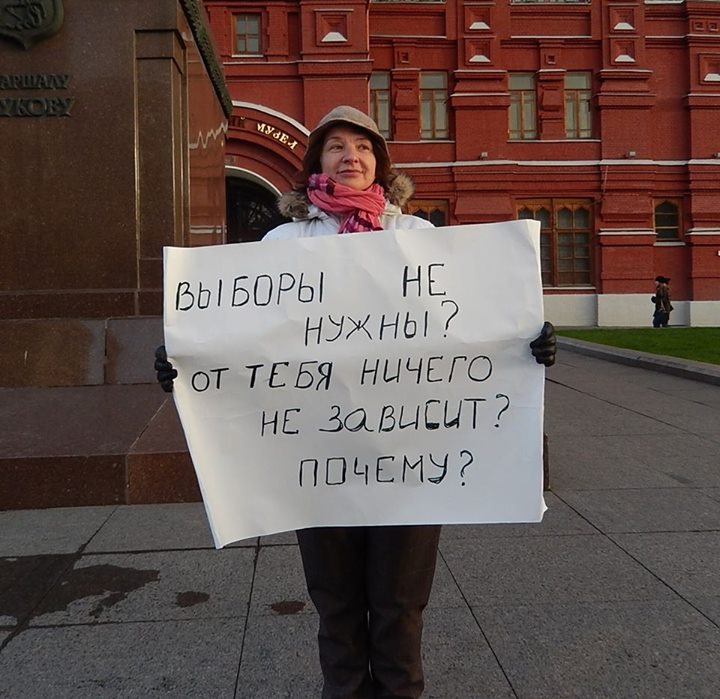 АРШАЛУ
УКОВУ
МУЗЕЙ
ВЫБОРЫ НЕ
НУЖНЫ?
ОТ ТЕБЯ НИЧЕГО
НЕ ЗАВИСИТ?
ПОЧЕМУ?